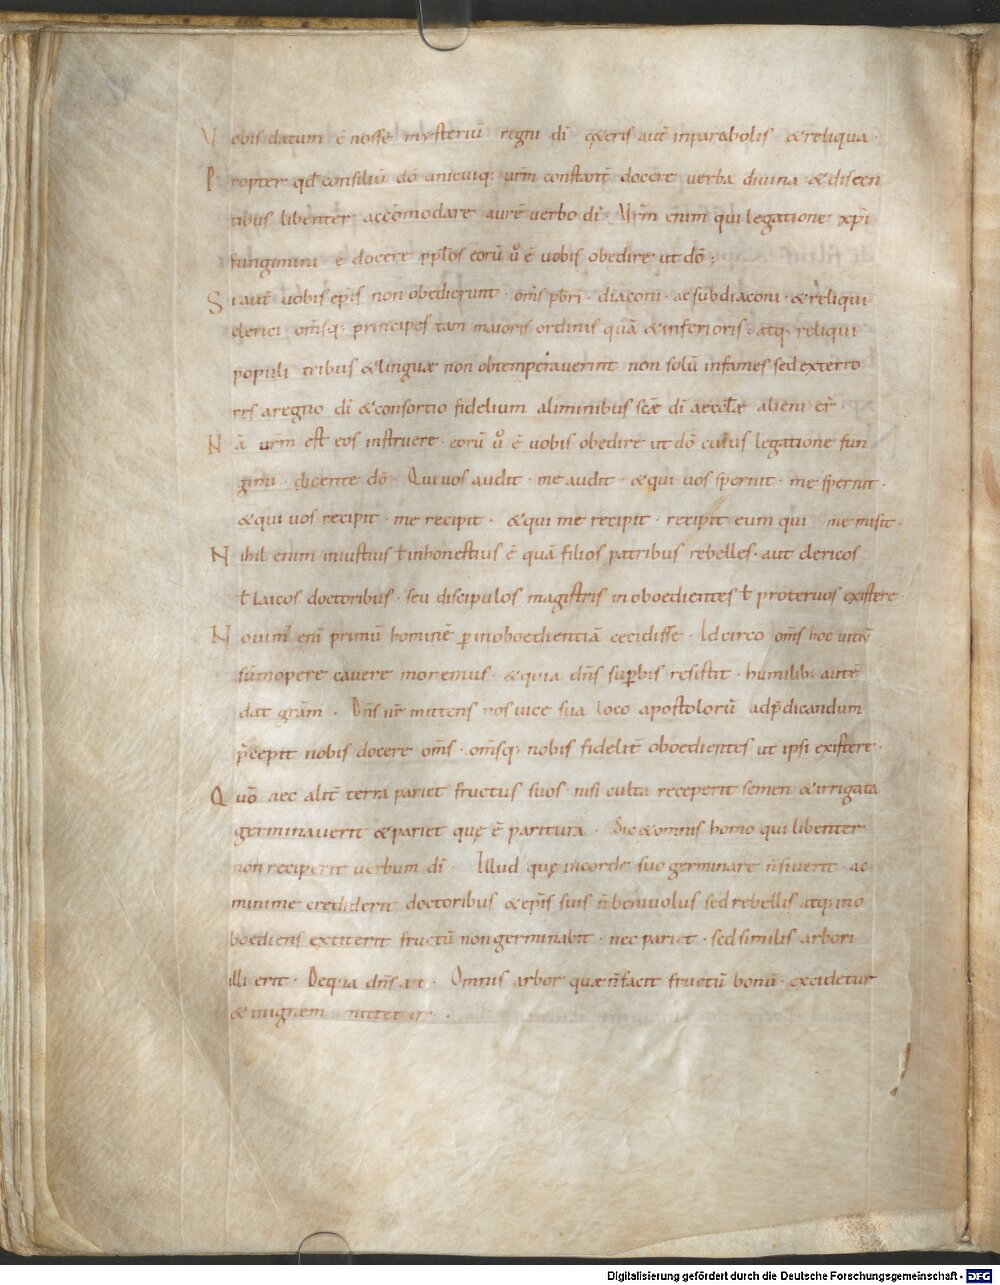 Vobis datum ē nosse mysteriū regni dī · ceteris aut̄ inparabolis · & reliqua ·
Propter qd̄ consiliū do unicuiq; urm̄ constant̄ docere verba divina · & discen
tibus libenter accōmodare aurē verbo dī · Urm̄ enim qui legatione xp̄i
fungimini ē docere ppl̄os eorū ů ē vobis obedire ut dō ;
Si aut̄ vobis ep̄is non obedierunt · om̄s pb̄ri · diaconi · ac subdiaconi · & reliqui
clerici om̄sq; principes tam maioris ordinis quā & inferioris · atq; reliqui
populi tribus & linguæ non obtemperaverint non solū infames sed extorro
res aregno dī & consortio fidelium aliminibus scæ dī aeccl̄æ alieni er̄ ·
Nā urm̄ est eos instruere · eorū ů ē vobis obedire ut dō cuius legatione fun
gimi · dicente dō · Qui vos audit · me audit · & qui vos spernit · me spernit ·
& qui vos recipit · me recipit · & qui me recipit · recipit eum qui me misit ·
Nihil enim iniustius ƚ inhonestius ē quā filios patribus rebelles · aut clericos
ƚ laicos doctoribus · seu discipulos magistris inoboedientes ƚ protervos existere ·
Novim' eni primū hominē p̱ inoboedientiā cecidisse · Idcirco om̄s hoc vitiū
sūmopere cavere moremus · & quia dn̄s sup̱bis resistit · humilib; autē
dat gram̄ · Dn̄s nr̄ mittens nos vice sua loco apostolorū adp̄dicandum
p̄cepit nobis docere om̄s · om̄sq; nobis fidelit̄ oboedientes ut ipsi existere ·
Quō nec alit̄ terra pariet fructus suos · nisi culta receperit semen & irrigata
germinaverit & pariet quę ē paritura · Sic & omnis homo qui libenter
non reciperit verbum dī · Illud quę incorde suo germinare n̄ siverit · ac
minime crediderit doctoribus & ep̄is suis n̄ benivolus sed rebellis atq; ino
boediens extiterit fructū non germinabit · nec pariet · sed similis arbori
illi erit · De qua dn̄s ait · Omnis arbor quæ n̄ facit fructū bonū · excidetur
& in ignem mittetur · .
Digitalisierung gefördert durch die Deutsche Forschungsgemeinschaft - DFG